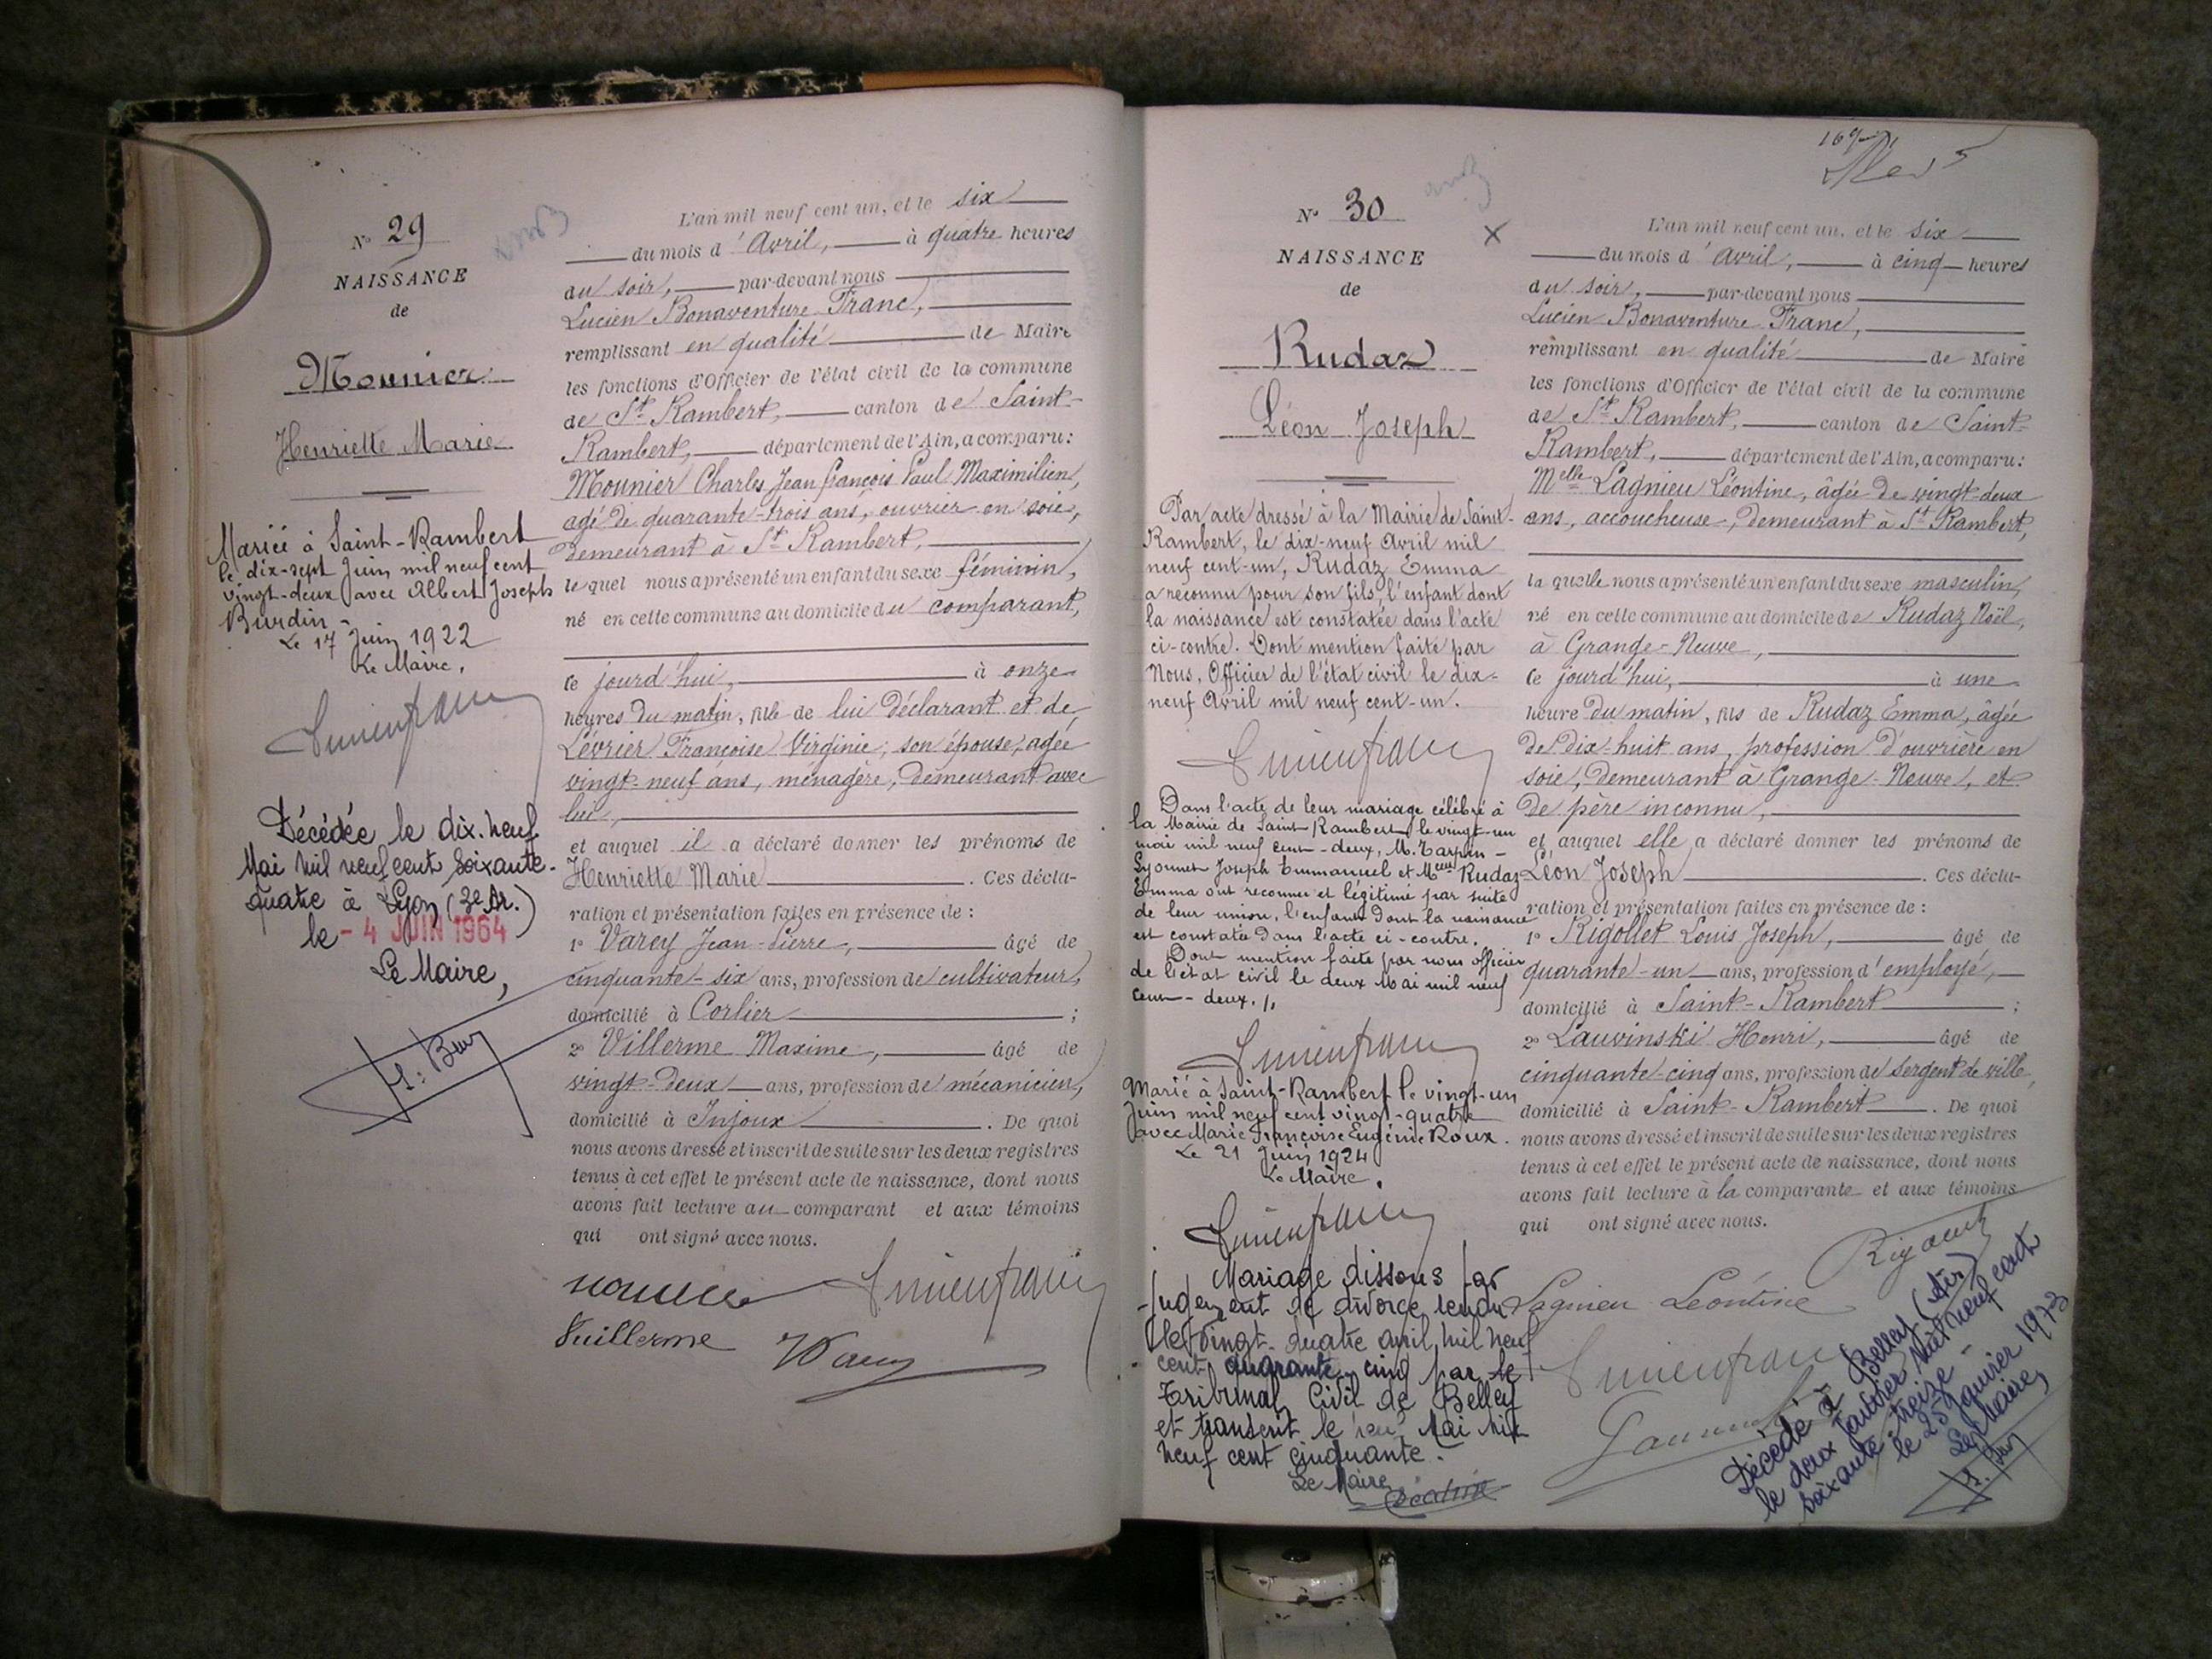 Nº 29
NAISSANCE
de
Mounier
Henriette Marie
Mariée à Saint-Rambert
le dix-sept Juin mil neuf cent
vingt-deux avec Albert Joseph
Burdin.
Le 17 Juin 1922
Le Maire,
Décédée le dix-neuf
Mai mil neuf cent soixante-
quatre à Lyon (3e Ar.)
le - 4 JUIN 1964
Le Maire,
L'an mil neuf cent un, et le six
du mois d'Avril, à quatre heures
du soir, par-devant nous
Lucien Bonaventure Franc,
remplissant en qualité de Maire
les fonctions d'Officier de l'état civil de la commune
de St Rambert, canton de Saint-
Rambert, département de l'Ain, a comparu:
Mounier Charles Jean françois Paul Maximilien,
agé de quarante-trois ans, ouvrier en soie,
demeurant à St Rambert,
lequel nous a présenté un enfant du sexe féminin,
né en cette commune au domicile du comparant,
ce jourd'hui, à onze
heures du matin, fille de lui déclarant et de
Lévrier Françoise Virginie, son épouse, agée
vingt-neuf ans, ménagère, demeurant avec
lui,
et auquel il a déclaré donner les prénoms de
Henriette Marie. Ces décla-
ration et présentation faites en présence de :
1º Varey Jean-Pierre, âgé de
cinquante-six ans, profession de cultivateur,
domicilié à Corlier ;
2º Villerme Maxime, âgé de
vingt-deux ans, profession de mécanicien,
domicilié à Injoux. De quoi
nous avons dressé et inscrit de suite sur les deux registres
tenus à cet effet le présent acte de naissance, dont nous
avons fait lecture au comparant et aux témoins
qui ont signé avec nous.
Vuillerme
Nº 30
NAISSANCE
de
Rudaz
Léon Joseph
Par acte dressé à la Mairie de Saint-
Rambert, le dix-neuf Avril mil
neuf cent-un, Rudaz Emma
a reconnu pour son fils, l'enfant dont
la naissance est constatée dans l'acte
ci-contre. Dont mention faite par
Nous, Officier de l'état civil le dix-
neuf Avril mil neuf cent-un.
Dans l'acte de leur mariage célébré à
la Mairie de Saint-Rambert le vingt-un
mai mil neuf cent-deux, M. Tarpin-
Lyonnet Joseph Emmanuel et Rudaz
Emma ont reconnu et légitimé par suite
de leur union, l'enfant dont la naissance
est constatée dans l'acte ci-contre.
Dont mention faite par nous officier
de l'état civil le deux Mai mil neuf
cent-deux./.
Marié à Saint-Rambert le vingt-un
Juin mil neuf cent vingt-quatre
avec Marie Françoise Eugénie Roux.
Le 21 Juin 1924
Le Maire.
Mariage dissous par
jugement de divorce rendu
le vingt-quatre avril mil neuf
cent quarante-cinq par le
Tribunal Civil de Belley
et transcrit le Mai mil
neuf cent cinquante.
Le Maire,
L'an mil neuf cent un, et le six
du mois d'Avril, à cinq heures
du soir, par-devant nous
Lucien Bonaventure Franc,
remplissant en qualité de Maire
les fonctions d'Officier de l'état civil de la commune
de St Rambert, canton de Saint-
Rambert, département de l'Ain, a comparu:
Melle Lagnieu Léontine, âgée de vingt-deux
ans, accoucheuse, demeurant à St Rambert,
laquelle nous a présenté un enfant du sexe masculin,
né en cette commune au domicile de Rudaz Noël,
à Grange-Neuve,
ce jourd'hui, à une
heure du matin, fils de Rudaz Emma, âgée
de dix-huit ans, profession d'ouvrière en
soie, demeurant à Grange-Neuve, et
de père inconnu,
et auquel elle a déclaré donner les prénoms de
Léon Joseph. Ces décla-
ration et présentation faites en présence de :
1º Rigollet Louis Joseph, âgé de
quarante-un ans, profession d'employé,
domicilié à Saint-Rambert ;
2º Lauvinski Henri, âgé de
cinquante-cinq ans, profession de sergent de ville
domicilié à Saint-Rambert. De quoi
nous avons dressé et inscrit de suite sur les deux registres
tenus à cet effet le présent acte de naissance, dont nous
avons fait lecture à la comparante et aux témoins
qui ont signé avec nous.
Lagnieu Léontine
Décédé à Belley (Ain)
le deux Janvier mil neuf cent
soixante-treize -
le 25 Janvier 1973
Le Maire,